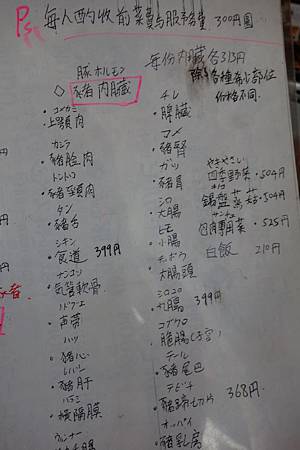 Ps 每人酌收前菜費与服务費 300円圓
每份内臟各313円
除各種希少部位
价格不同.
豚ホルモン
◇豬内臟
コメカミ
・上頸肉
カシラ
・豬臉肉
トントロ
・豬頸肉
タン
・豬舌
シキン
・食道 399円
ナンコツ
・気管軟骨
ノドブエ
・声帯
ハツ
・豬心
レバー
・豬肝
ハラミ
・橫隔膜
チレ
・脾臓
マメ
・豬腎
ガツ
・豬胃
シロ
・大腸
ヒモ
・小腸
チポウ
・大腸頭
シロコロ
・丸腸 399円
コブクロ
・脆腸(子宮)
テール
・豬尾巴
テビチ
・豬蹄切片 368円
オッパイ
・豬乳房
やきやさい
四季野菜・504円
・504円
サンチュ
包肉専用菜・525円
白飯 210円